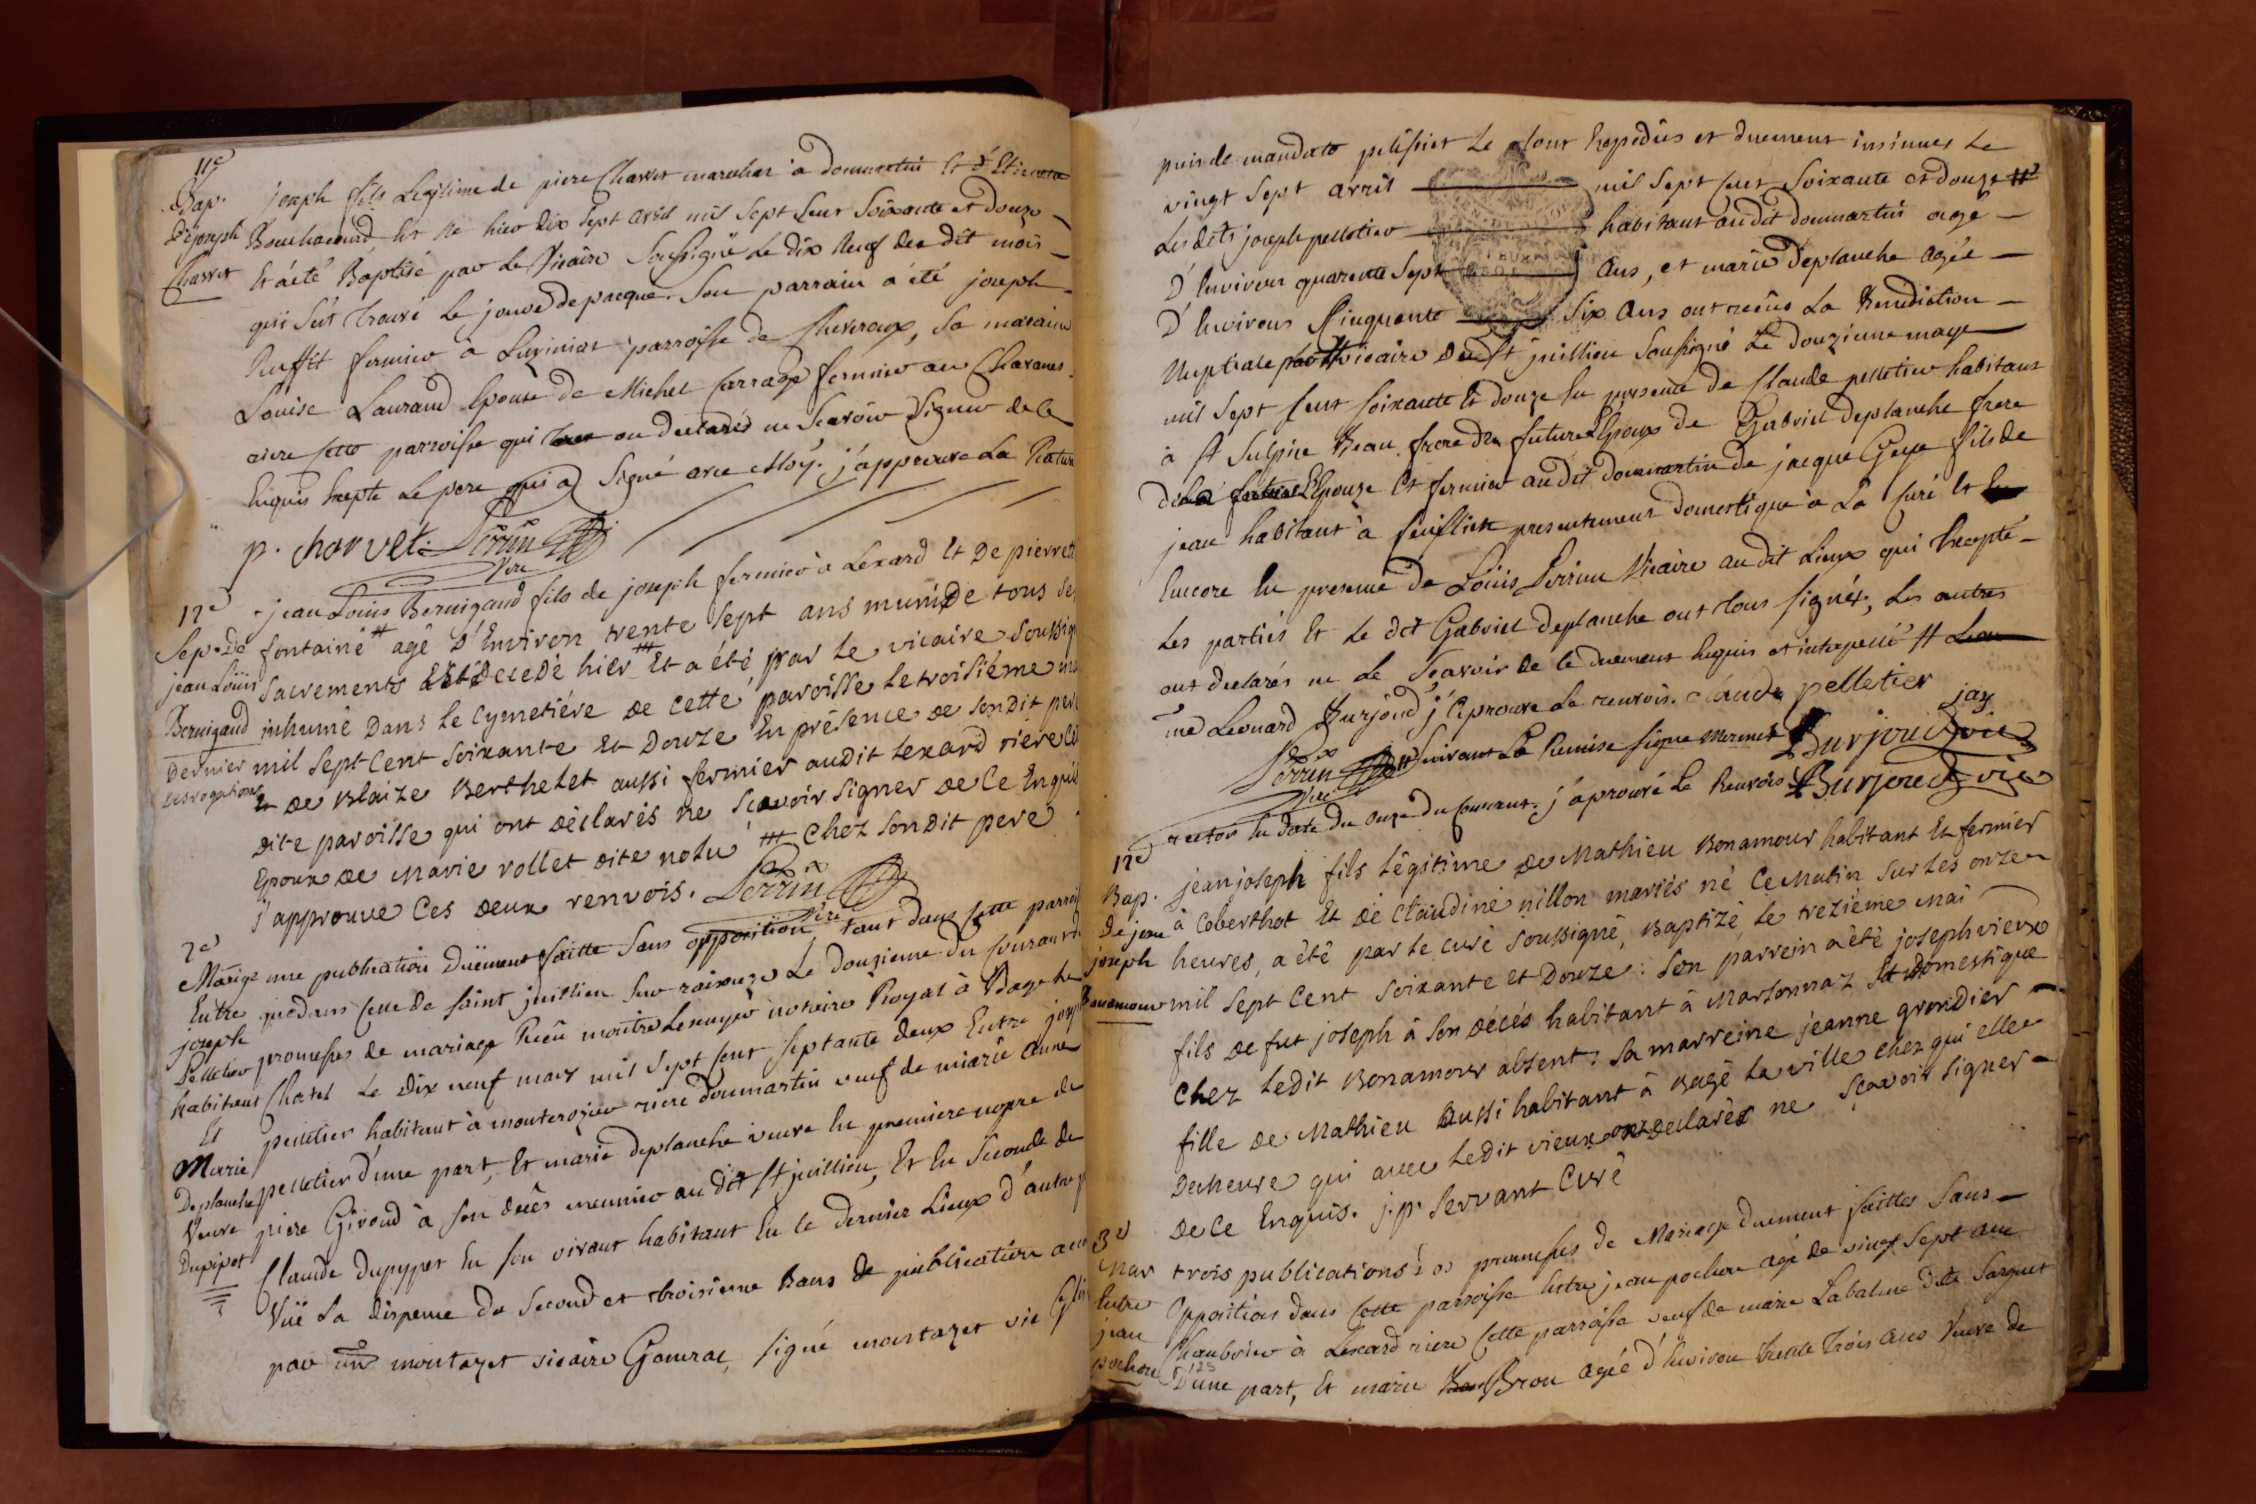 11e
Bap. joseph fils Legitime de piere Charvet marechal à dommartin Et d'Etiennette
De joseph Bouchacourd Est Né hier dix sept avril mil sept Cent Soixante et douze
Charvet Et a été Baptisé par Le Vicaire Soussigné Le dix Neuf du dit mois
qui s'est trouvé Le jour de pacque. Son parrain a été joseph
fermier à parroisse de Chevroux, Sa maraine
Louise Lauraud Epouse de Michel Carrage fermier au Chavanes
riere Cette parroisse qui ont declarés ne Scavoir Signer de Ce
Enquis Excepté Le pere qui a Signé avec Moy. j'approuve La Rature
p. charvet. Perrin Vire
12e jean Louis Bernigaud fils de joseph fermier à Lexard Et De pierrette
Sep. De fontaine # agé D'Environ trente sept ans muni De tous Ses
jean Loüis Sacrements Est Décedé hier ## Et a été par Le vicaire Soussigné
Bernigaud inhumé Dans Le Cymetiére De Cette paroisse Le troisiéme
Dernier mil Sept Cent Soixante Et Douze En présence De Son Dit pere
Des rogations Et De Blaize Berthelet aussi fermier audit Lexard riere
Dite paroisse qui ont Déclarés Ne Scavoir Signer De Ce Enquis
# Epoux De Marie rollet Dite nolu ## Chez Son Dit pere
j'approuve Ces Deux renvois. Perrin Vire
2e
Mariage une publication Düement faitte Sans opposition tant dans Cette parroisse
Entre que dans Celle De Saint juillien Sur raisouze Le douzieme du Courant
joseph promesses de mariage Reçu maitre notaire Royal à Bage Le
Pelletier Chatel Le Dix neuf mars mil Sept Cent Septante deux Entre joseph
habitant pelletier habitant à monterozier riere dommartin veuf de marie Anne
Et pelletier d'une part, Et marie deplanche veuve En premiere nopce de
Marie piere Giroud à son Déces meunier au dit St juillien, Et En Seconde de
Deplanche Claude Dupypet En Son vivant habitant En Ce dernier Lieux d'autre
Veuve Vüe La Dispense du Second et troisieme Bans de publication
Dupipet par montazet vicaire General, signé montazet vic
puis de mandato pelissier Le tout Expediés et duement insinues Le
vingt Sept avril mil Sept Cent Soixante et douze #
Les dits joseph pelletier habitant au dit dommartin agé
D'Environ quarente Sept Ans, et marie Deplanche agée
D'Environs Cinquante Six Ans ont reçüs La Benediction
Nuptiale vicaire De St juillien Soussigné Le douzieme may
mil Sept Cent Soixante Et douze En presence de Claude pelletier habitant
à St Sulpice Beau frere du futur Epoux De Gabriel deplanche frere
de la Epouze Et fermier au dit dommartin de jacque Gage fils de
jean habitant à presentement domestique à La Cure Et
Encore En presence de Loüis Perrin Vicaire au dit Lieux qui Excepté
Les parties Et Le dit Gabriel deplanche ont tous signés, Les autres
ont declarés ne Le Scavoir de Ce duement Enquis et interpellé #
me Leonard Burjoud j'éprouve Le renvois. Claude pelletier jay
Perrin Vire # Suivant La Remise signe mermet Burjoud vic
rector En date Du onze du Courant. j'aprouvé Le Renvois Burjoud vic
12e
Bap. jean joseph fils Légitime De Mathieu Bonamour habitant Et fermier
De jean à Coberthot Et De Claudine nillon mariés né Ce Matin Sur Les onze
joseph heures, a été par Le Curé Soussigné, Baptizé, Le trezieme Mai
Bonamour mil Sept Cent Soixante et Douze: Son parrein a été joseph vieux
fils De fut joseph à Son Décés habitant à Marsonnaz Et Domestique
Chez Ledit Bonamour absent: Sa marreine jeanne grondier
fille De Mathieu Aussi habitant à Bagé La ville Chez qui elle
Demeure qui avec Ledit vieux ont Déclarés ne Sçavoir Signer
De Ce Enquis. j. p. Servant Curé
3e
Mar trois publications de promesses de Mariage duement faittes Sans
Entre Opposition dans Cette parroisse Entre jean pochon agé de vingt Sept ans
jean à Lexard riere Cette parroisse veuf de marie Labalme dite
pochon D'une part, Et marie Bron agée d'Environ Trente Trois Ans Veuve de
125